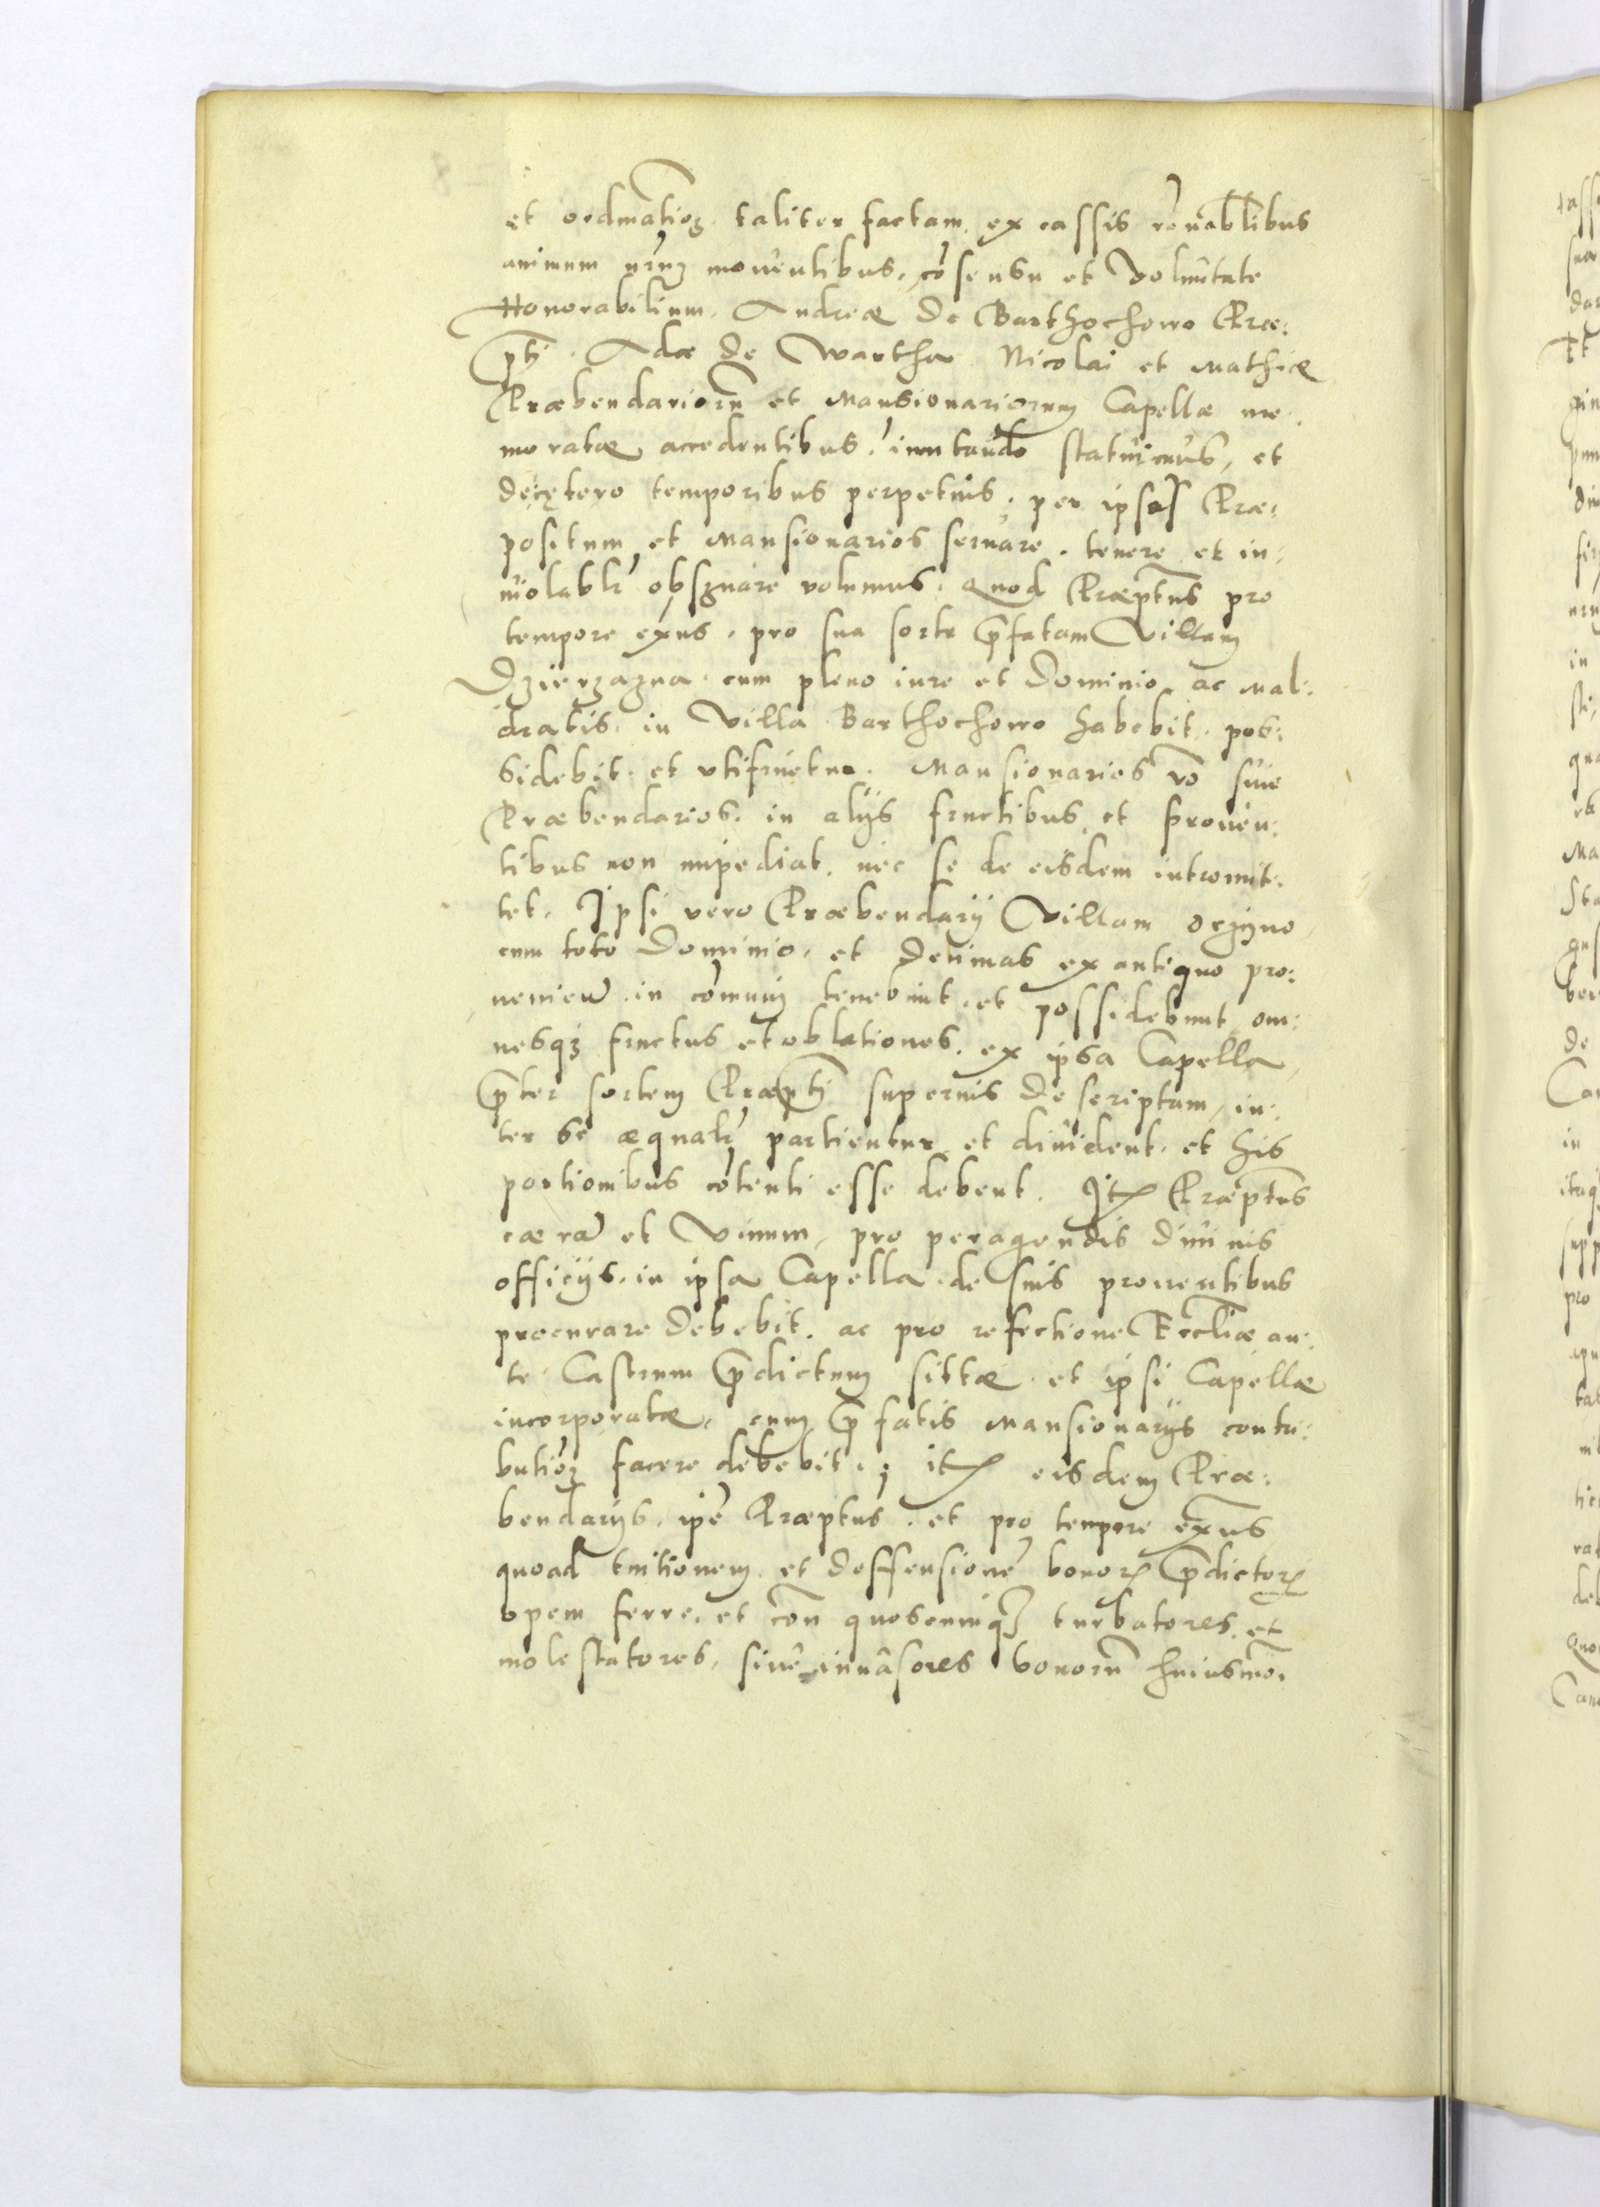 et ordinatioȝ taliter factam, ex cassis rõnabilibus
animum nr̃uȝ mouentibus, cõsensu et Volũtate
Honorabilium. Andreæ De Barthochowo Præ:
p̃ti. Adæ de Wartha Nicolai et Mathiæ
Præbendariorũ et Mansionariorum Capellæ me:
moratæ accedentibus. statuimus, et
decętero temporibus perpetuis, per ipsos Præ:
positum et Mansionarios seruare, tenere et in:
uiolablr̃ obseruare volumus. Quod Præptus pro
tempore exñs, pro sua sorte p̃fatam Villam
Dzierzazna cum pleno iure et Dominio ac Mal:
dratis in Villa Barthochowo habebit, pos:
sidebit, et vtifruetur. Mansionarios v̂o siue
Præbendarios in alijs fructibus et prouen:
tibus non impediat, nec se de eisdem intromit:
tet. Ipsi vero Præbendarij Villam
cum toto Dominio, et Decimas ex antiquo pro:
in com̃uni tenebunt, et possidebunt om:
nesqȝ fructus et oblationes, ex ipsa Capella
p̃ter sortem Præp̃ti superius descriptam, in:
ter se æqualr̃ partientur et diuident, et his
portionibus cõtenti esse debent. Itẽ Præptus
cærã et Vinum, pro peragendis diuinis
officijs, in ipsa Capella de suis prouentibus
procurare debebit, ac pro refectione Eccl̃iæ an:
te Castrum p̃dictum sittæ et ipsi Capellæ
incorporatæ, cum p̃fatis Mansionarijs contri:
butioȝ facere debebit.; itẽ eisdem Præ:
bendarijs, ip̃e Præptus, et pro tempore exñs
quoad tuitionem et deffensionẽ bonorȝ p̃dictorȝ
opem ferre, et cõn quoscunqȝ turbatores, et
molestatores, siue inuasores bonorũ huiusmõi